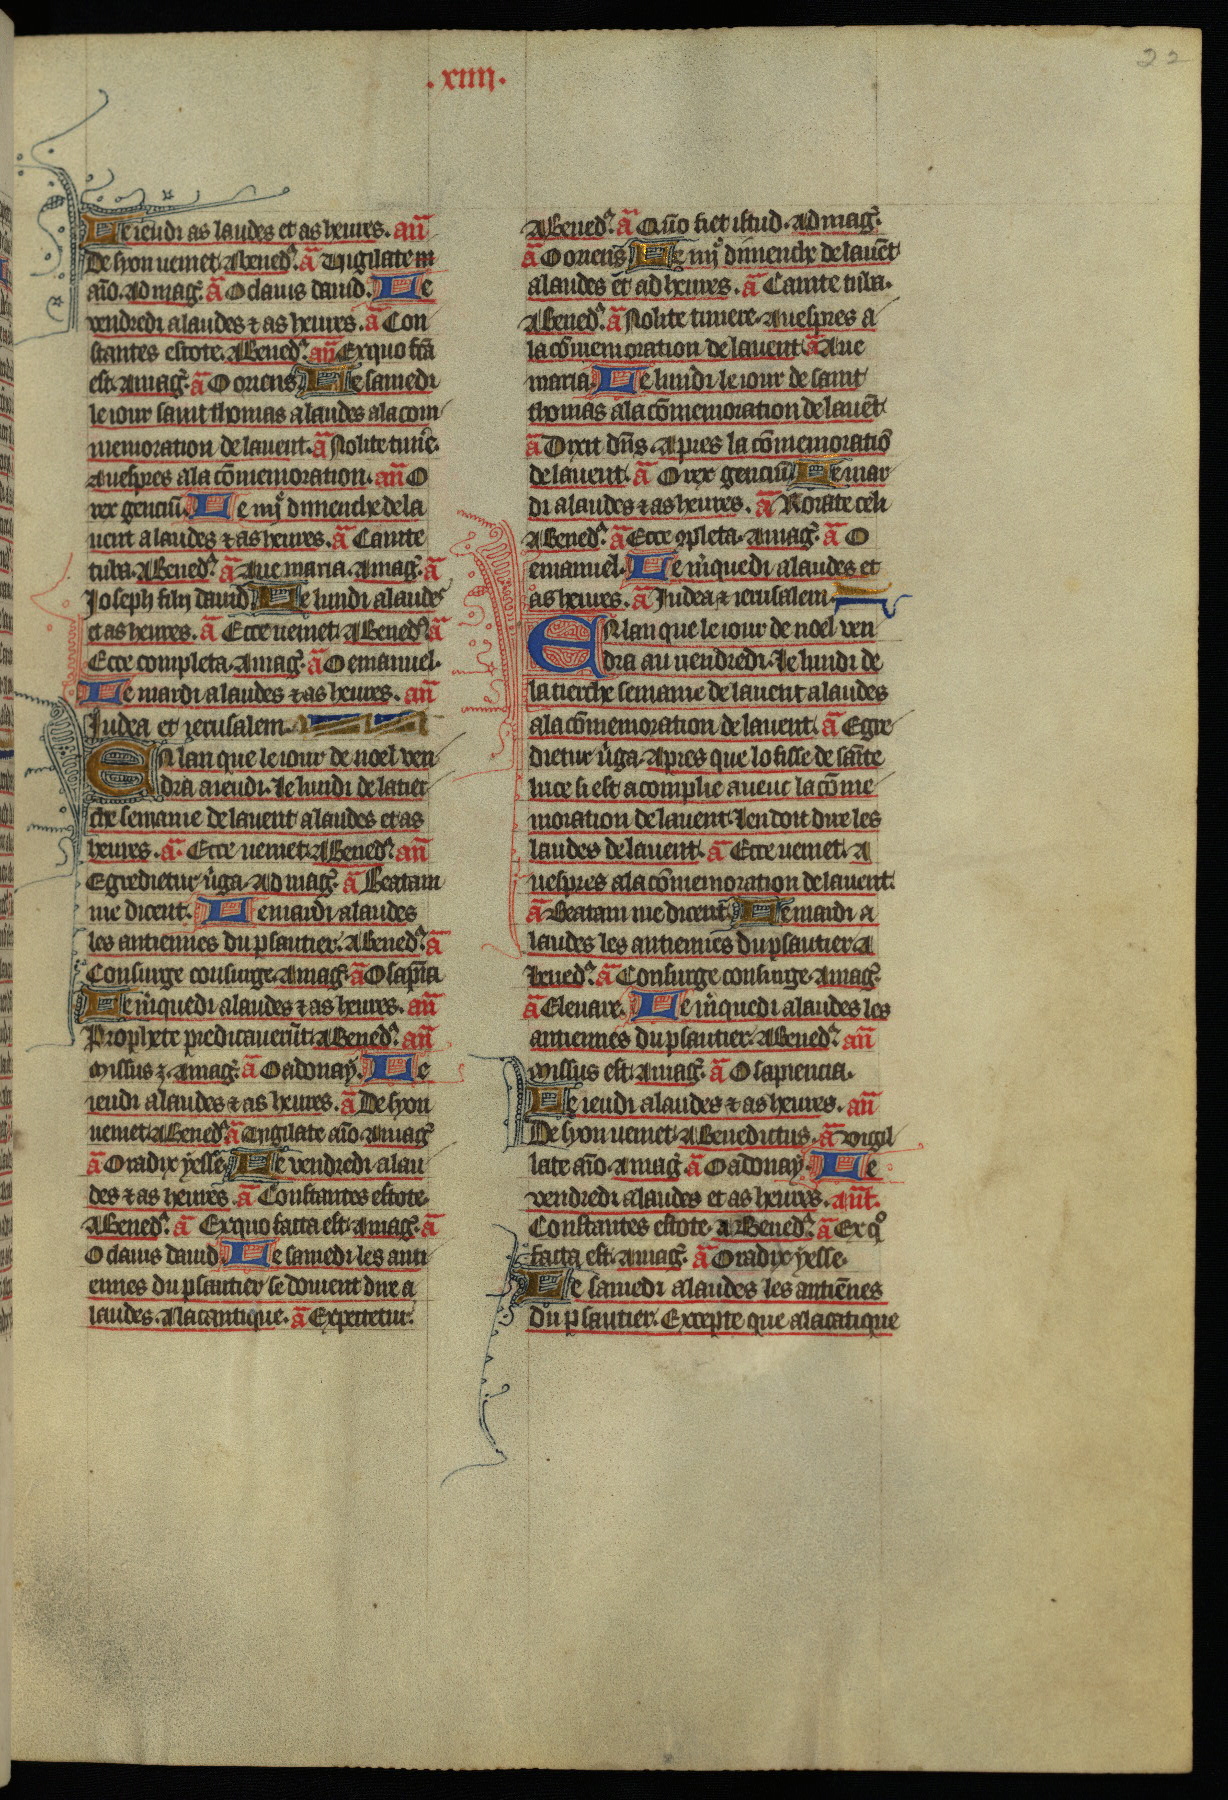 22
.xiiij.
Le ieudi as laudes et as heures. añ
De syon ueniet. A bened̾. ā Uigilate in
aīo. Ad mag̾. ā O clauis dauid. Le
vendredi a laudes ⁊ as heures. ā Con
stantes estote. A Bened̾. añ Ex quo fc̄a
est. A mag̾. ā O oriens. Le samedi
le iour saint thomas a laudes a la com
memoration de lauent. ā Nolite tim̄e.
A uespres a la cōmemoration. añ O
rex genciū. Le iiij͛ dimenche de la
uent a laudes ⁊ as heures. ā Canite
tuba. A Bened̾. ā Aue maria. A mag̾. ā
Joseph fili dauid. Le lundi a laudes
et as heures. ā Ecce ueniet. A Bened̾. ā
Ecce completa. A mag̾. ā O emanuel.
Le mardi a laudes ⁊ as heures. añ
Judea et ierusalem.
En lan que le iour de noel ven
dra a ieudi. Le lundi de la tier
che semaine de lauent a laudes et as
heures. ā. Ecce ueniet. A Bened̾. añ
Egredietur ūga. Ad mag̾. ā Beatam
me dicent. Le mardi a laudes
les antiennes du psautier. A Bened̾. ā
Consurge consurge. A mag̾. ā O sapīa
Le m̄quedi a laudes ⁊ as heures. añ
Prophete predicauerūt. A Bened̾. añ
Missus ꝫ. A mag̾. ā O adonay. Le
ieudi a laudes ⁊ as heures. ā De syon
ueniet. A Bened̾. ā Uigilate aīo. A mag̾
ā O radix yesse. Le vendredi a lau
des ⁊ as heures. ā Constantes estote.
A Bened̾. ā Ex quo facta est. A mag̾. ā
O clauis dauid. Le samedi les anti
ennes du psautier se doiuent dire a
laudes. A la cantique. ā Expectetur.
A Bened̾. ā Quō fiet istud. Ad mag̾.
ā O oriens. Le iiij͛ dimenche de lauēt
a laudes et ad heures. ā Canite tuba.
A Bened̾. ā Nolite timere. A uespres a
la cōmemoration de lauent. ā Aue
maria. Le lundi le iour de saint
thomas a la cōmemoration de lauēt
ā Dixit dn̄s. Apres la cōmemoratiō
de lauent. ā O rex genciū. Le mar
di a laudes ⁊ as heures. ā Rorate celi
A Bened̾. ā Ecce ꝯpleta. A mag̾. ā O
emanuel. Le m̄quedi a laudes et
as heures. ā Judea ⁊ ierusalem.
En lan que le iour de noel ven
dra au uendredi. Le lundi de
la tierche semaine de lauent a laudes
a la cōmemoration de lauent. ā Egre
dietur ūga. Apres que lofisse de sāīte
luce si est acomplie aueuc la cōme
moration de lauent. Len doit dire les
laudes de lauent. ā Ecce ueniet. A
uespres a la cōmemoration de lauent.
ā Beatam me dicent. Le mardi a
laudes les antiennes du psautier. A
Bened̾. ā Consurge consurge. A mag̾
ā Eleuare. Le m̄quedi a laudes les
antiennes du psautier. A Bened̾. añ
Missus est. A mag̾. ā O sapiencia.
Le ieudi a laudes ⁊ as heures. añ
De syon ueniet. A Benedictus. ā Vigi
late aīo. A mag̾. ā O adonay. Le
vendredi a laudes et as heures. añt.
Constantes estote. A Bened̾. ā Ex qͦ
facta est. A mag̾. ā O radix yesse.
Le samedi a laudes les antiēnes
du psautier. Excepte que a la cātique